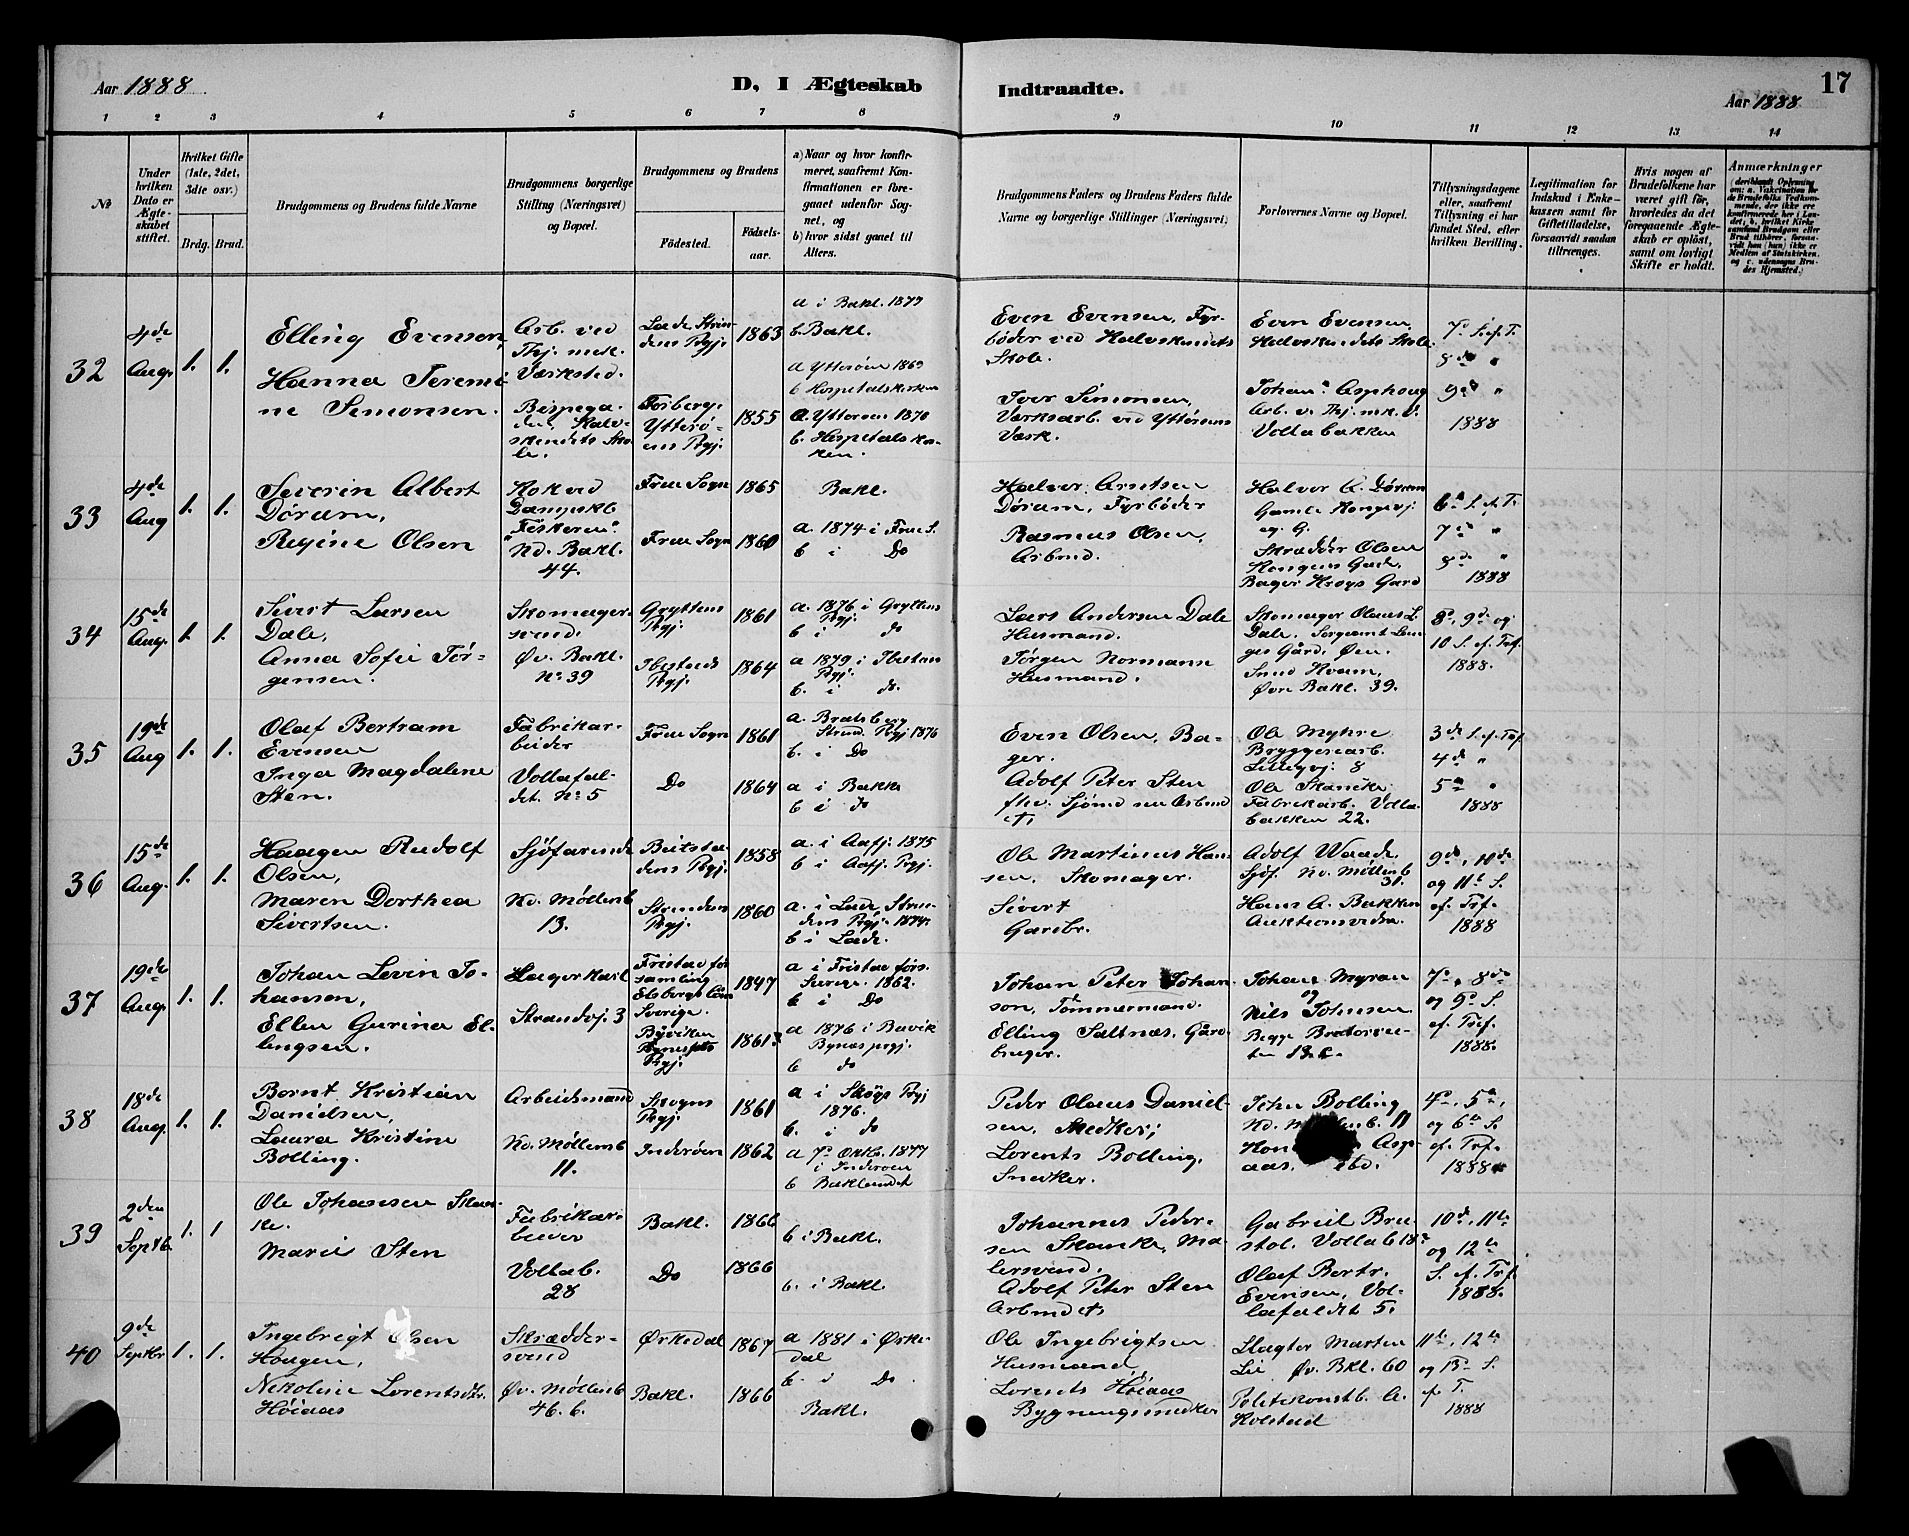 Aar 1888.
D, I Ægteskab
Indtraadte.
17
Aar 1888.
1 2 3 4 5 6 7 8 9 10 11 12 13 14
No
Under hvilken Dato er Ægteskabet stiftet.
Hvilket Gifte (1ste, 2det, 3die osv.)
Brdg. Brud.
Brudgommens og Brudens fulde Navne
Brudgommens borgerlige Stilling (Næringsvei) og Bopæl.
Brudgommens og Brudens
Fødested. Fødselsaar.
a) Naar og hvor konfirmeret, saafremt Konfirmationen er foregaaet udenfor Sognet, og
b) hvor sidst gaaet til Alters.
Brudgommens Faders og Brudens Faders fulde Navne og borgerlige Stillinger (Næringsvei)
Forlovernes Navne og Bopæl.
Tillysningsdagene eller, saafremt Tillysning ei har fundet Sted, efter hvilken Bevilling.
Legitimation for Indskud i Enkekassen samt for Giftetilladelse, forsaavidt saadan tiltrænges.
Hvis nogen af Brudefolkene har været gift før, hvorledes da det foregaaende Ægteskab er opløst, samt om lovligt Skifte er holdt.
Anmærkninger
32
4de Aug.
1. 1.
Elling Evensen,
Hanna Jeremine Simonsen.
Arb. ved Thj. mek. Værksted.
Bispegaden, Kalvskindets Skole.
Lade, Strindens Pgj. 1863
Fosberg, Ytterøens Pgj. 1855
a i Bakl. 1879
b. Bakl.
a Ytterøen 1869
b Hospitalskirken
a. Ytterøen 1870
b. Hospitalskirken.
Even Evensen, Fyrbøder ved Kalvskindets Skole.
Iver Simonsen, Værksarb. ved Ytterøens Værk.
Even Evensen, Kalvskindets Skole.
Johan Asphoug Arb. v. Thj. mek. V. Vollabakken
7de S. ef. T.
8de "
9de "
1888
33
4de Aug
1. 1.
Severin Albert Døram,
Regine Olsen
Kok ved Dampskb. "Fiskeren"
Nd. Bakl. 44.
Frue Sogn 1865
Frue Sogn 1860
Bakl.
a. 1874 i Frue S.
b i Do
Halvor Arntsen Døram, Fyrbøder
Rasmus Olsen, Arbmd.
Halvor A. Døram Gamle Kongevj. og G.
Skrædder Olsen Kongens Gade, Bager Krogs Gaard
6te S. ef. T.
7de "
8de "
1888
34
15de Aug.
1. 1.
Sivert Larsen Dale,
Anna Sofie Jørgensen.
Skomagersvend.
Øv. Bakl. No 39
Gryttens Pgj. 1861
Ibestads Pgj. 1864
a. 1876 i Gryttens Pgj.
b i do
a 1879 i Ibestads Pgj.
b. i do.
Lars Andersen Dale Husmand.
Jørgen Normann Husmand.
Skomager Olaus L. Dale.
Øvre Bakl. 39.
8de, 9de og
10 S. ef. Tref.
1888.
35
19de Aug
1. 1.
Olaf Bertram Evensen
Inga Magdalene Sten.
Fabrikarbeider
Vollafaldet. No 5
Frue Sogn 1861
Do 1864
a. Bratsberg Strind. Pgj. 1876
b. i Do
a i Bakke
b i do
Even Olsen, Bager.
Adolf Peter Sten
Ole Myhre Bryggesearb. Lillegj. 8
Ole Skancke Fabrikarb. Vollabakken 22.
3de S. ef. Tref.
4de "
5te "
1888
36
15de Aug.
1. 1.
Haagen Rudolf Olsen,
Maren Dorthea Sivertsen.
Sjøfarende
Nd. Møllenb 13.
Beitstadens Pgj. 1858
Strindens Pgj. 1860
a. i Aafj. 1875
b i Aafj. Pgj.
a. i Lade, Strindens Pgj. 1874.
b i Lade.
Ole Martinus Hansen, Skomager.
Sivert
Gaardbr.
Adolf Waade, Sjøf. Nd. Møllenb 31.
Hans A. Bakken Auktionsvidne.
9de, 10de
og 11te S.
ef. Tref.
1888
37
19de Aug.
1. 1.
Johan Levin Johansen,
Ellen Gurina Ellingsen.
Lagerkarl
Strandvj. 3
Fristad forsamling Elsborgs Län Sverige. 1847
Byviken Bynessets Pgj. 1861
a i Fristad førs. Sverige. 1862.
b i Do
a 1876 i Buvik Bynæs pgj.
b do
Johan Peter Johanson, Tømmermand.
Elling Saltnæs, Gårdbruger.
Johan Myran
og
Nils Johnsen
Begge Bratørveiten 13 c.
7de, 8de
og 9de S.
ef. Tref.
1888.
38
18de Aug.
1. 1.
Bernt Kristian Danielsen,
Laura Kristine Bolling.
Arbeidsmand
Nd. Møllenb 11.
Skogns Pgj. 1861
Inderøen 1862
a i Skogn Pgj 1876.
b. i do
a 7de Oktb. 1877 i Inderøen
b Baklandet
Peder Olaus Danielsen, Snedker;
Lorents Bolling, Snedker.
John Bolling Nd. Møllenb. 11
4de, 5te,
og 6te S.
ef. Tref.
1888
39
2den Septb.
1. 1
Ole Johansen Skanke.
Marie Sten
Fabrikarbeider
Vollab. 28
Bakl. 1866
Do 1866
b i Bakl.
b. i Bakl.
Johannes Pedersen Skanke, Malersvend.
Adolf Peter Sten Arbmd
Gabriel Brustol. Vollab 18
Olaf Bertr. Evensen, Vollafaldet 5.
10de, 11te
og 12te
S. ef. Tref.
1888.
40
9de Septbr
1. 1.
Ingebrigt Olsen Hougen,
Nikoline Lorentsdtr. Høiaas
Skræddersvend
Øv. Møllenb 46. b.
Ørkedal 1867
Bakl. 1866
a 1881 i Ørkedal
b. i Do.
Bakl.
Ole Ingebrigtsen Husmand,
Lorents Høiaas Bygningssnedker
Slagter Marten Lie Øv. Bkl. 60
Politikonstb. A. Holstad
11te, 12te
og 13de S.
ef T.
1888